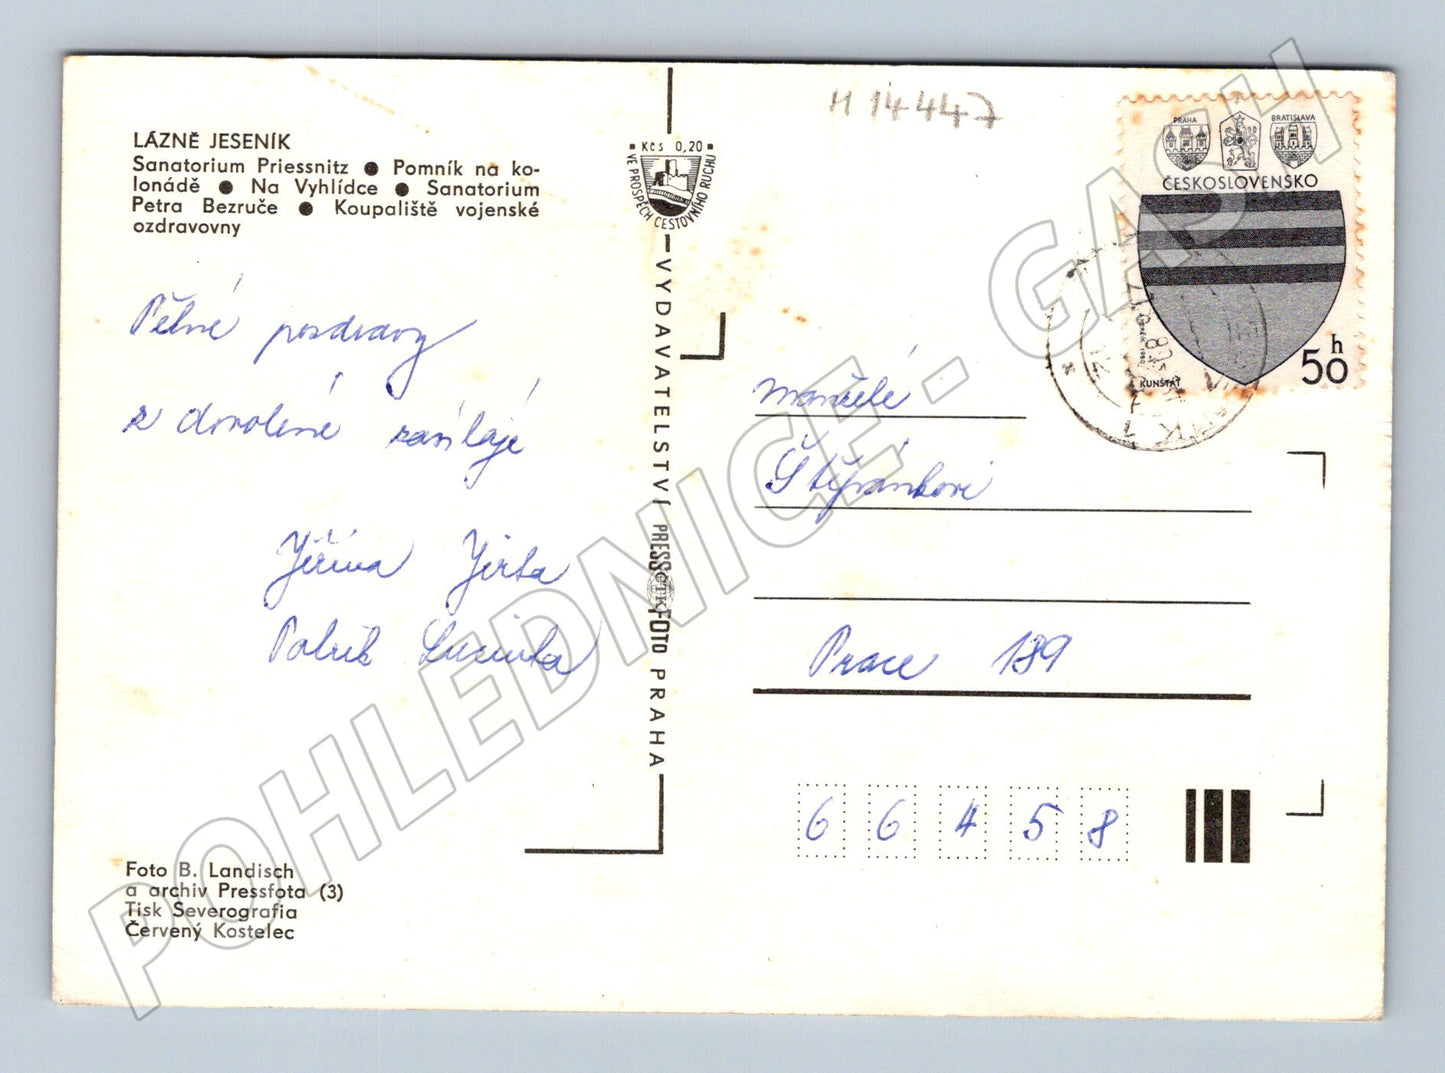 LÁZNĚ JESENÍK
Sanatorium Priessnitz ● Pomník na ko-
lonádě ● Na Vyhlídce ● Sanatorium
Petra Bezruče ● Koupaliště vojenské
ozdravovny
Pěkné pozdravy
z dovolené zasílají
Jiřina Jirka
Patrik Lucinka
Foto B. Landisch
a archiv Pressfota (3)
Tisk Severografia
Červený Kostelec
Kčs 0,20
VE PROSPĚCH CESTOVNÍHO RUCHU
VYDAVATELSTVÍ PRESSFOTO PRAHA
ČTK
M 14447
PRAHA
BRATISLAVA
ČESKOSLOVENSKO
KUNŠTÁT
50 h
manželé
Štěpánkovi
Prace 189
66458
POHLEDNICE - GASH